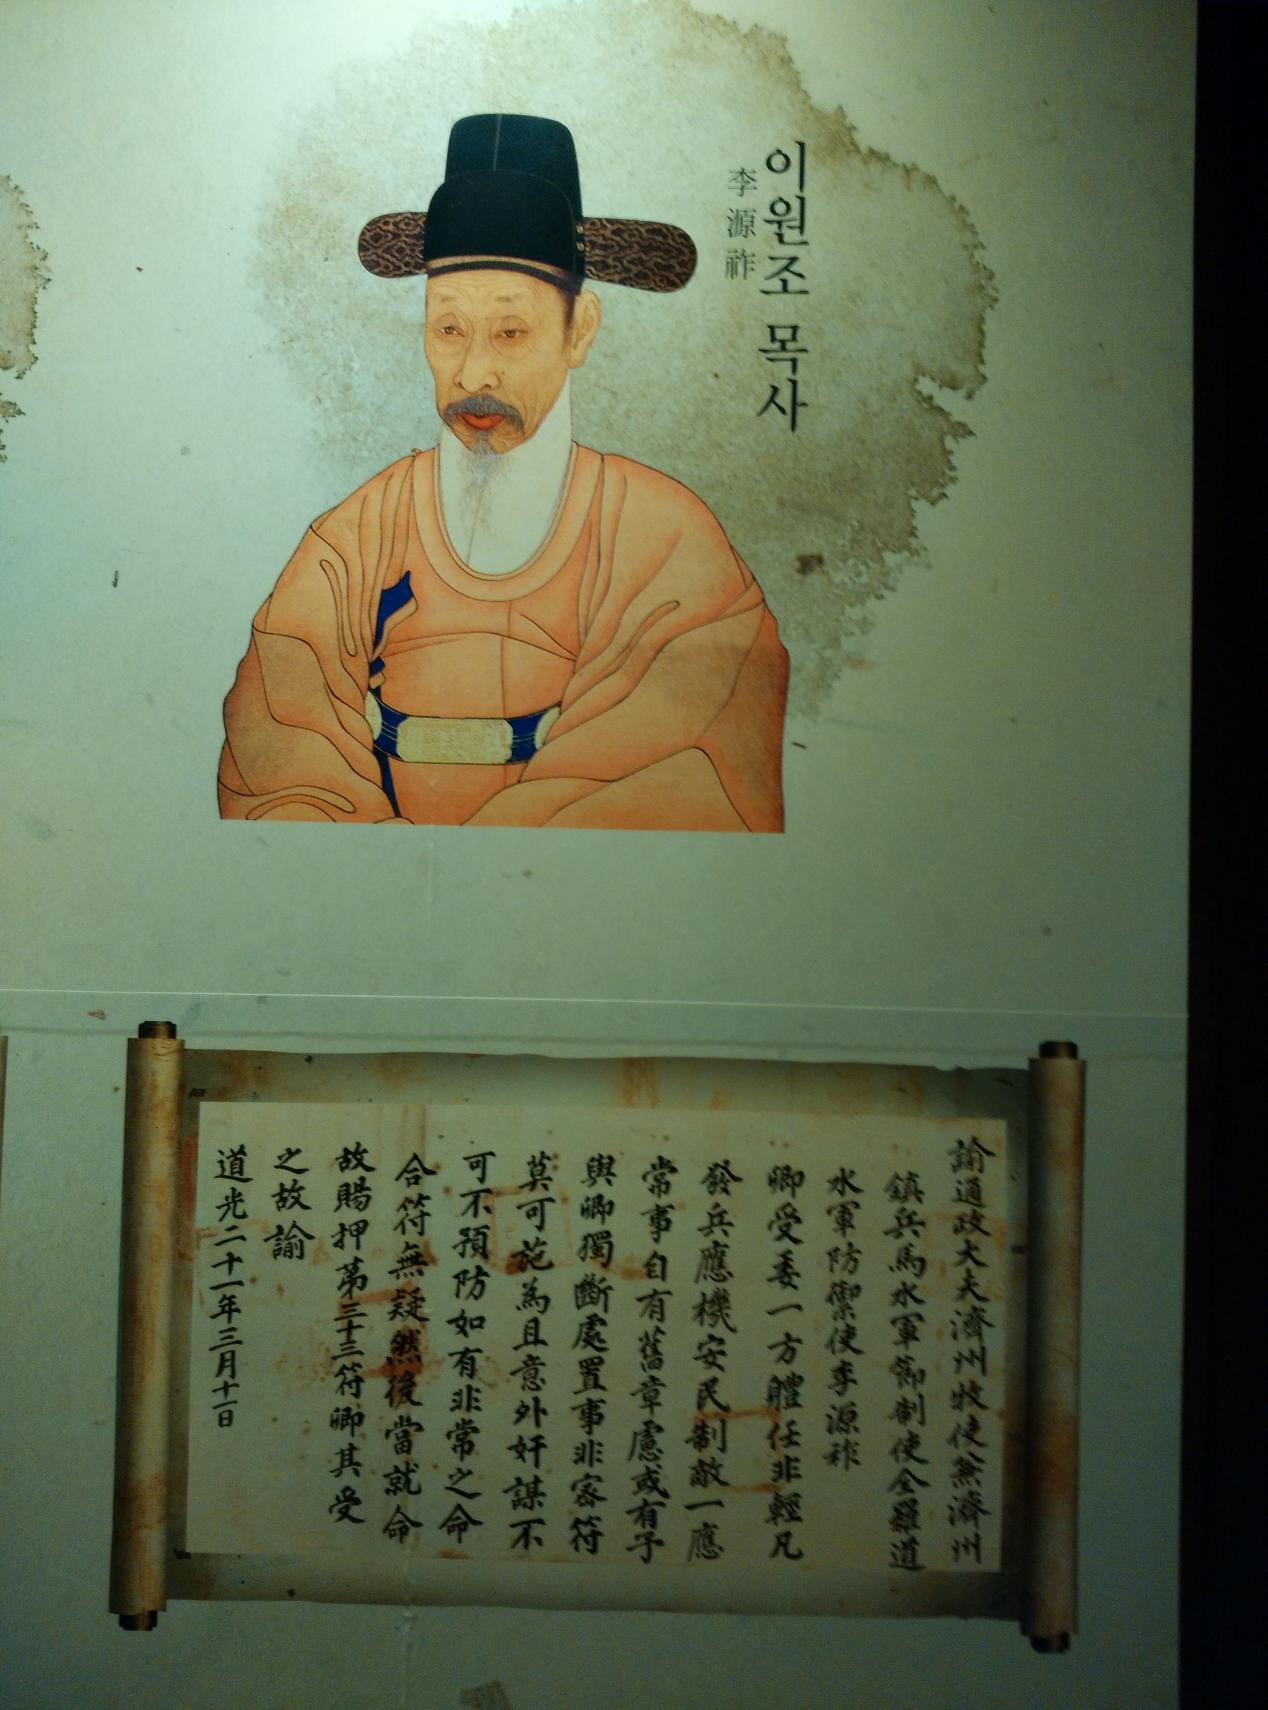 이원조 목사
李源祚
諭通政大夫濟州牧使兼濟州
鎮兵馬水軍節制使全羅道
水軍防禦使李源祚
卿受委一方軆任非輕凡
發兵應機安民制敵一應
常事自有舊章慮或有予
與卿獨斷處置事非密符
莫可施為且意外奸謀不
可不預防如有非常之命
合符無疑然後當就命
故賜押第三十三符卿其受
之故諭
道光二十一年三月十二日